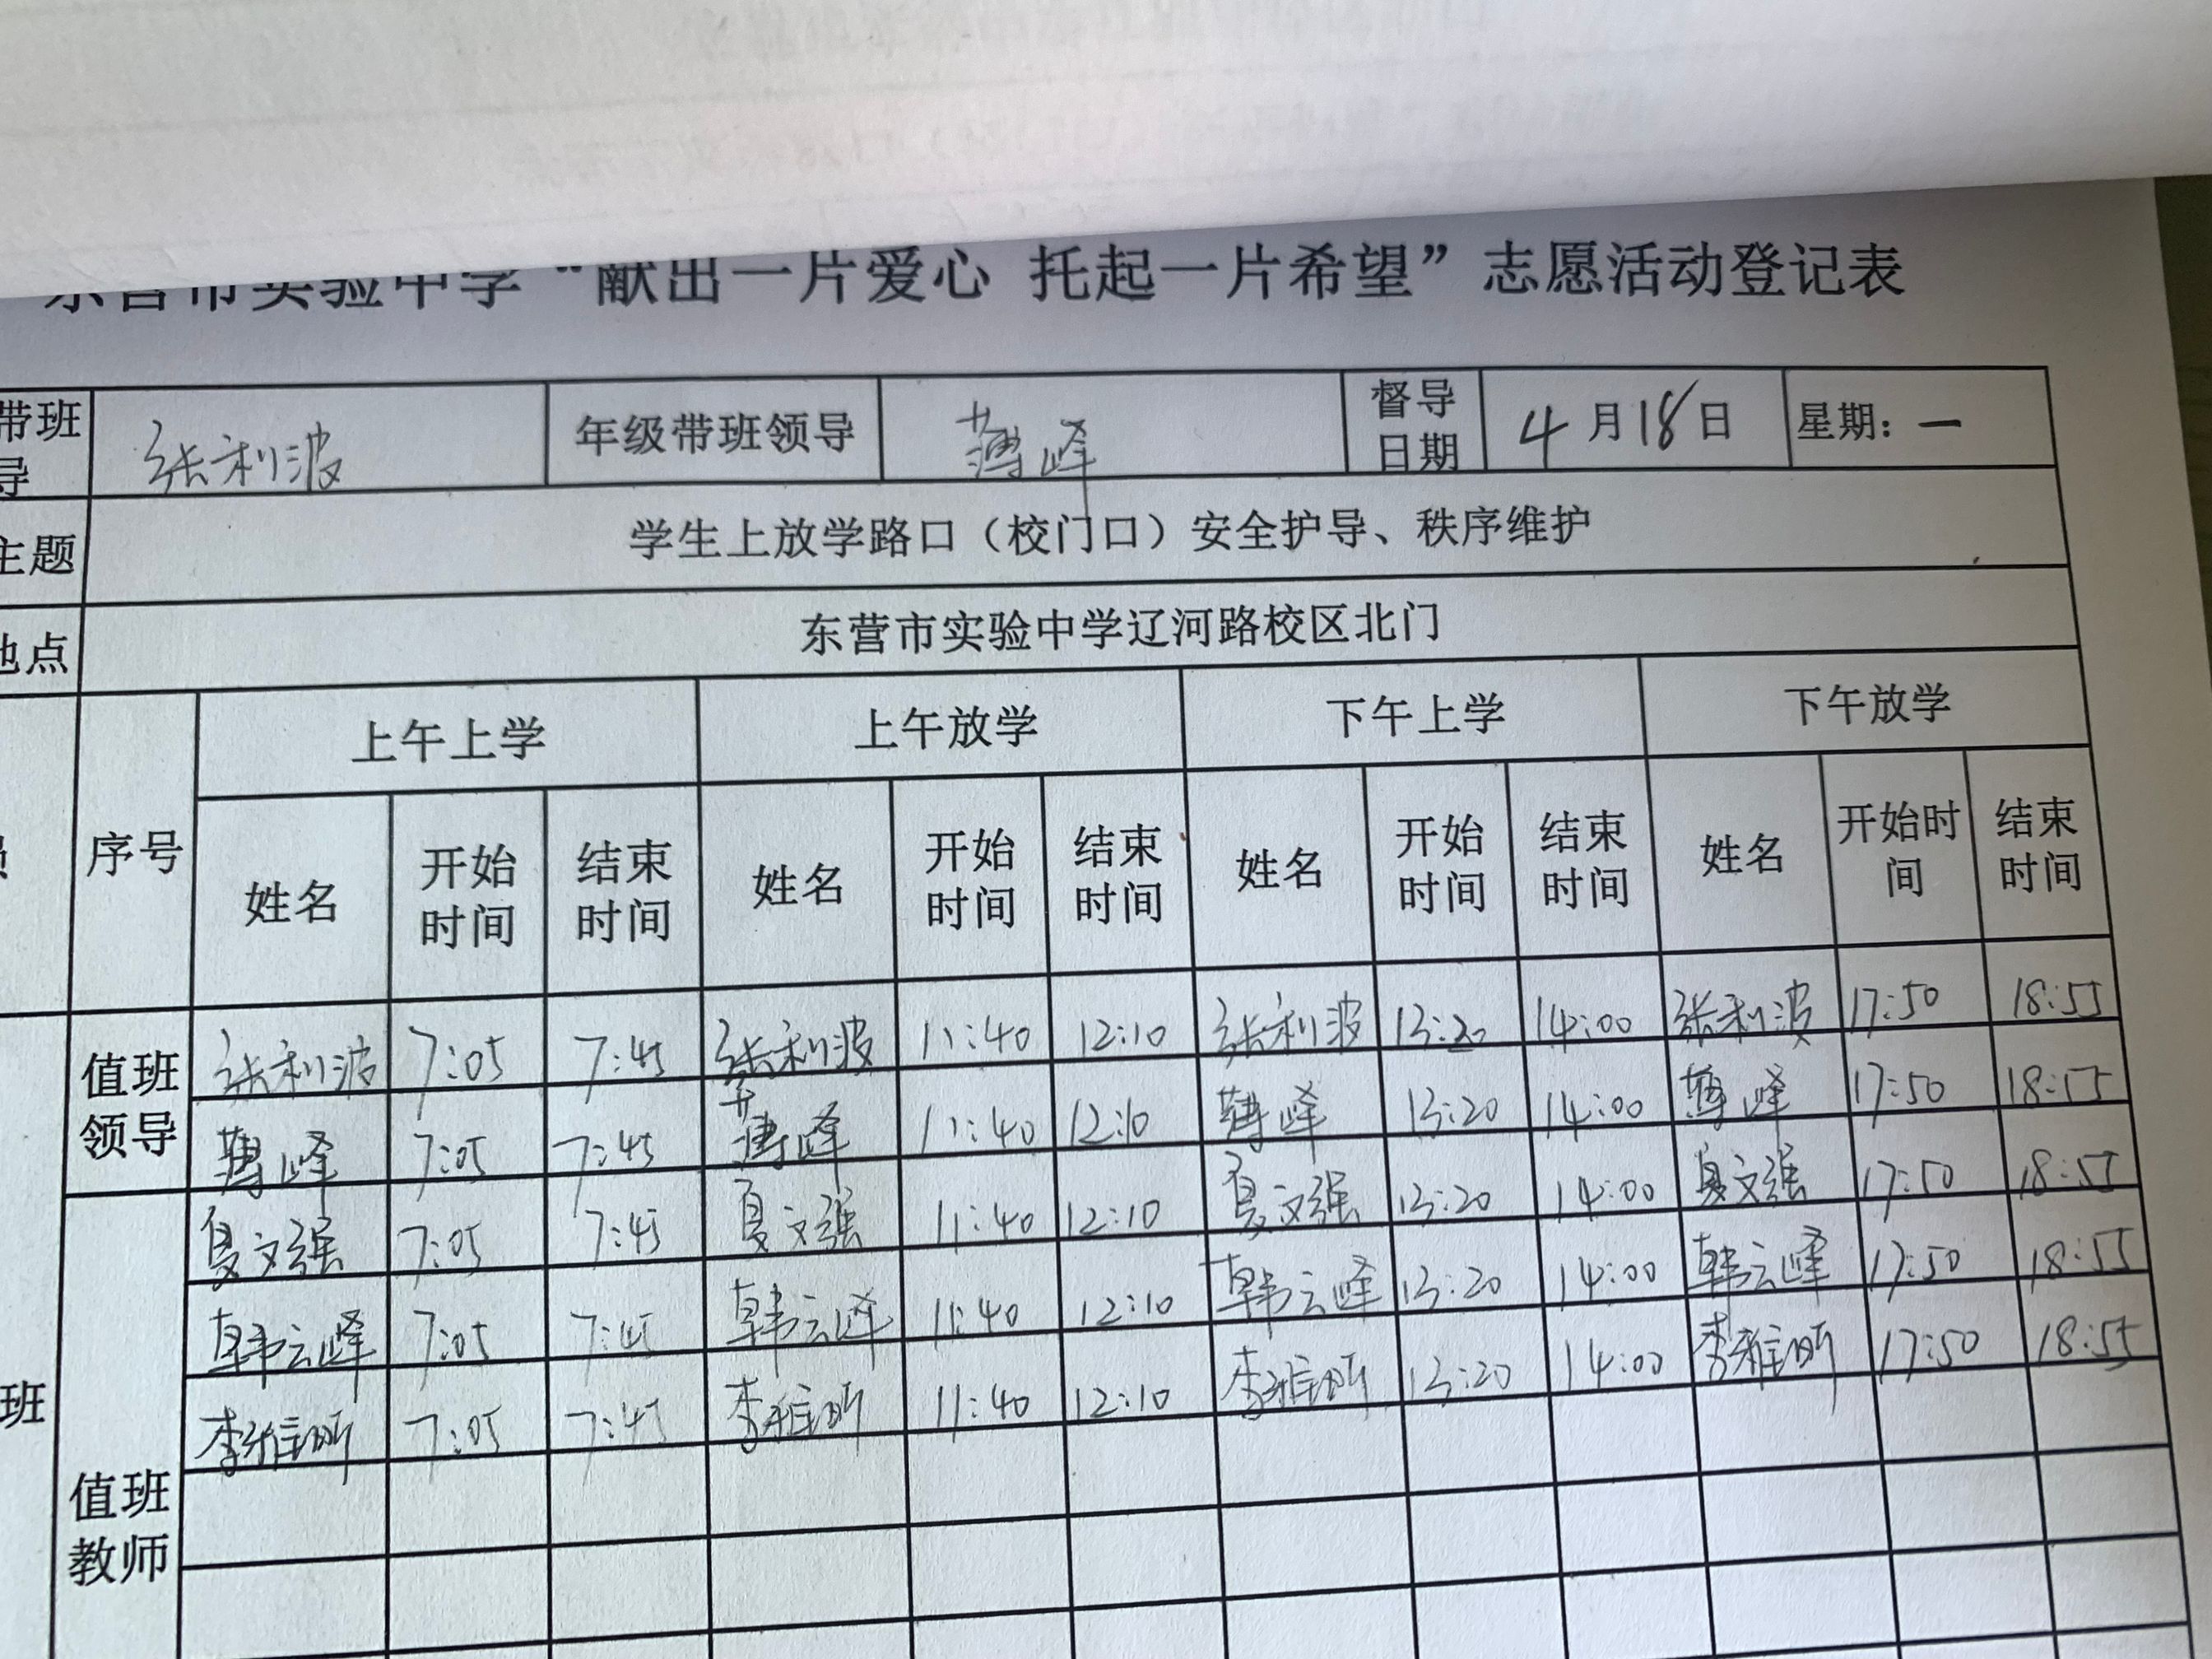 东营市实验中学“献出一片爱心 托起一片希望”志愿活动登记表
带班 张利波 年级带班领导 薄峰 督导 4月18日 星期：一
导 日期
主题 学生上放学路口（校门口）安全护导、秩序维护
地点 东营市实验中学辽河路校区北门
序号 上午上学 上午放学 下午上学 下午放学
姓名 开始时间 结束时间 姓名 开始时间 结束时间 姓名 开始时间 结束时间 姓名 开始时间 结束时间
值班领导 张利波 7:05 7:45 张利波 11:40 12:10 张利波 13:20 14:00 张利波 17:50 18:55
薄峰 7:05 7:45 薄峰 11:40 12:10 薄峰 13:20 14:00 薄峰 17:50 18:55
班 值班教师 夏文强 7:05 7:45 夏文强 11:40 12:10 夏文强 13:20 14:00 夏文强 17:50 18:55
韩云峰 7:05 7:45 韩云峰 11:40 12:10 韩云峰 13:20 14:00 韩云峰 17:50 18:55
李雅昕 7:05 7:45 李雅昕 11:40 12:10 李雅昕 13:20 14:00 李雅昕 17:50 18:55